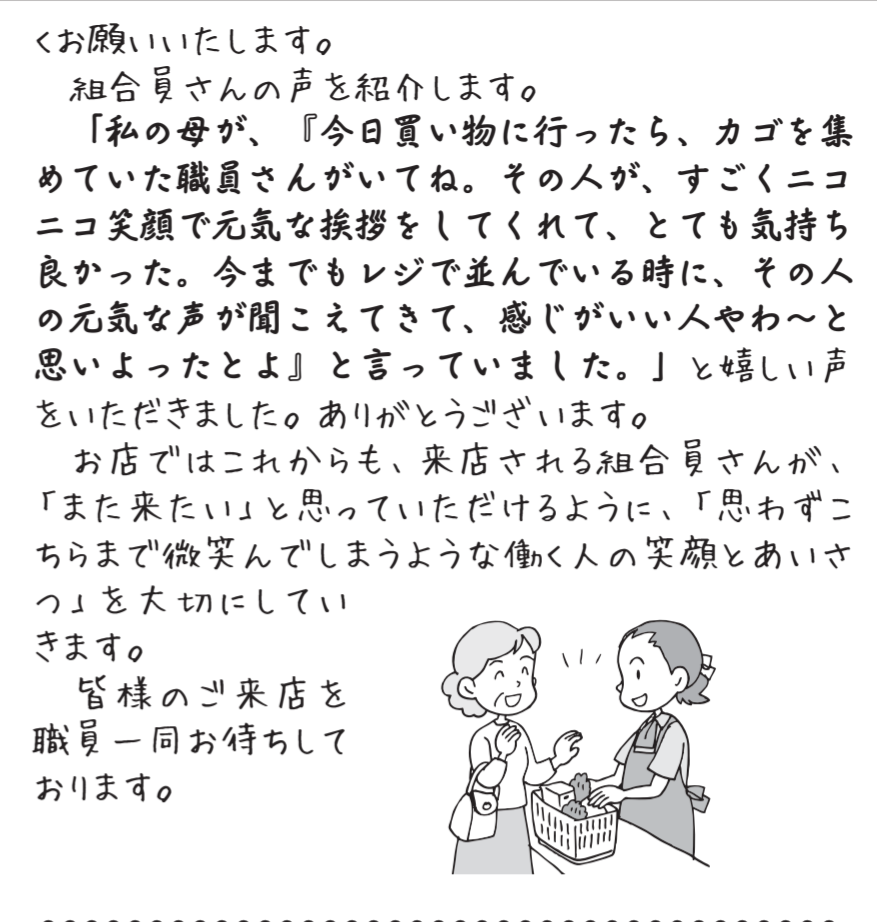 くお願いいたします。
組合員さんの声を紹介します。
「私の母が、『今日買い物に行ったら、カゴを集
めていた職員さんがいてね。その人が、すごくニコ
ニコ笑顔で元気な挨拶をしてくれて、とても気持ち
良かった。今までもレジで並んでいる時に、その人
の元気な声が聞こえてきて、感じがいい人やわ～と
思いよったとよ』と言っていました。」と嬉しい声
をいただきました。ありがとうございます。
お店ではこれからも、来店される組合員さんが、
「また来たい」と思っていただけるように、「思わずこ
ちらまで微笑んでしまうような働く人の笑顔とあいさ
つ」を大切にしてい
きます。
皆様のご来店を
職員一同お待ちして
おります。